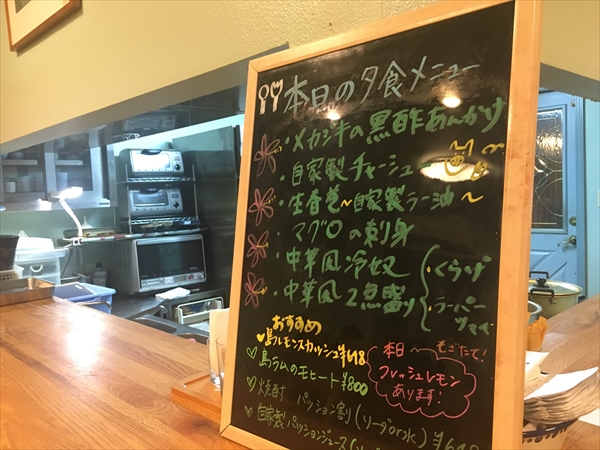 本日の夕食メニュー
・メカジキの黒酢あんかけ
・自家製チャーシュー
・生春巻〜自家製ラー油〜
マグロの刺身
・中華風冷奴
・中華風2点盛り
・くらげ
・ラーパー
ツァイ
おすすめ
島レモンスカッシュ
島ラムのモヒート ¥800
焼酎 パッション割(ソーダor水)
自家製パッションジュース
本日〜もぎたて!
フレッシュレモン
あります!